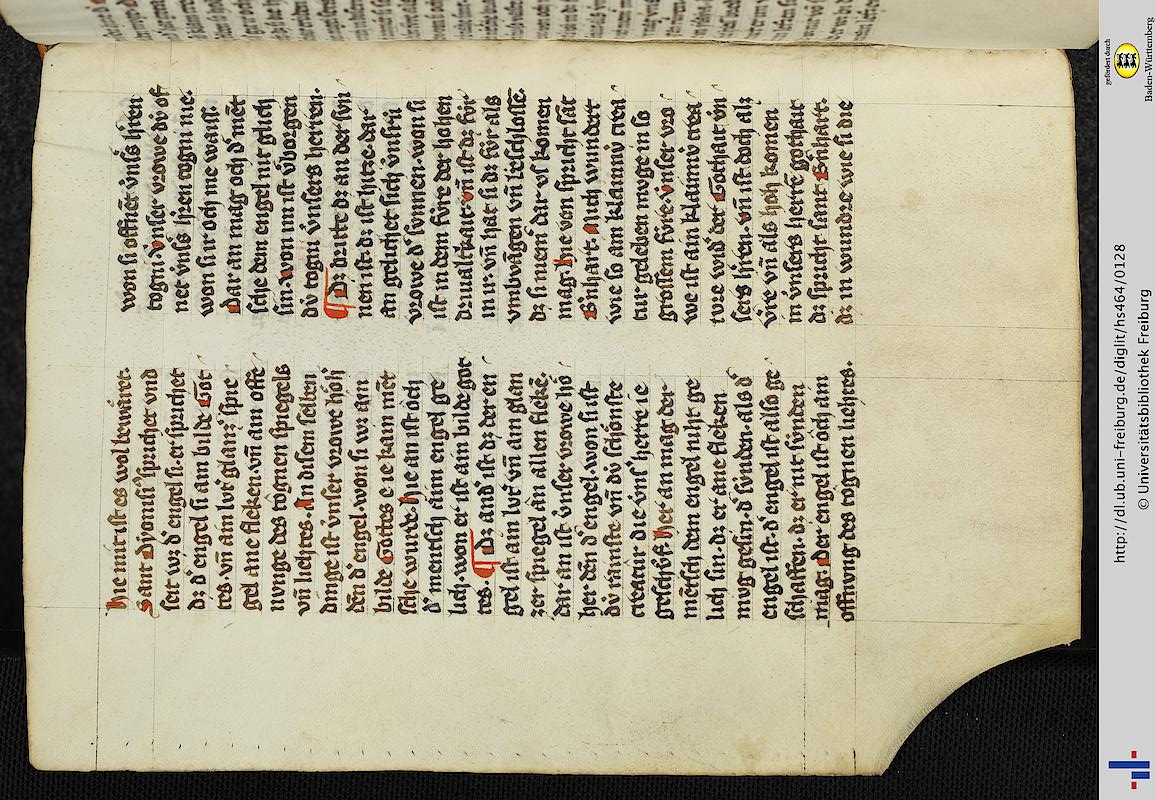 hie mit ist es wol bewåret.
Sant Dyonisi sprichet vnd
seit wz dˀ engel si. er sprichet
dz dˀ engel si ain bilde Got
tes. vn̄ ain lvt̓ glantz spie
gel ane flecken. vn̄ ain offe
nunge des tŏgnen spiegels
vn̄ liehtes. An disem selben
dinge ist vnser vrowe hŏh̓
den dˀ engel. won si wz ain
bilde Gottes e ie kain men̄
sche wurde. hie an ist och
dˀ mentsch ainn engel ge
lich. won er ist ain bilde got
tes. ¶ Dz andˀ ist dz der en
gel ist ain lvt̓ vn̄ ain glan
zer spiegel an allen flekē.
dar an ist vnser vrowe hŏ
her den dˀ engel. won si ist
dv́ rainste vn̄ dv́ schŏnste
creatur die vnsˀ herre ie
geschůf. Hier an mag der
mētsch den engel niht ge
lich sin. dz er ane flecken
mvg gesin. dˀ svnden. als dˀ
engel ist. dˀ engel ist also ge
schaffen. dz er nit svnden
mag. Der engel ist och ain
offnung des tŏgnen liehtes.
won si offnet vnsˀ hˀren
togni. vnser vrowe dv́ of
net vnsˀs hˀren togni me.
won si ir och me waiss.
Dar an mag och dˀ mēt
sche dem engel nit glich
sin. won im ist v̓borgen
dv́ togni vnsers herren.
¶ Dz dritte dz an der svn
nen ist. dz ist hitze. dar
an gelichet sich vnsrv́
vrowe dˀ svnnen. won si
ist in dem fúre der hohen
driualtkait. vn̄ ist dz fv́r
in ir. vn̄ hat si dz fv́r als
vmbvāgen vn̄ beschlossē.
dz si niemˀ dar vs komen
mag. Hie von spricht sāt
Bˀnhart. Mich wundert
wie so ain klainnv́ crea
tur geleben mvge in so
grossem fúre. vnser vro
we ist ain klainnv́ crea
ture widˀ der Gothait vn
sers hˀren. vn̄ ist doch als
vˀre vn̄ als hoh komen
in vnsers herrē gothait
dz spricht sant Bˀnhart.
dz in wundre wie si die
gefördert durch
Baden-Württemberg
http://dl.ub.uni-freiburg.de/diglit/hs464/0128
© Universitätsbibliothek Freiburg